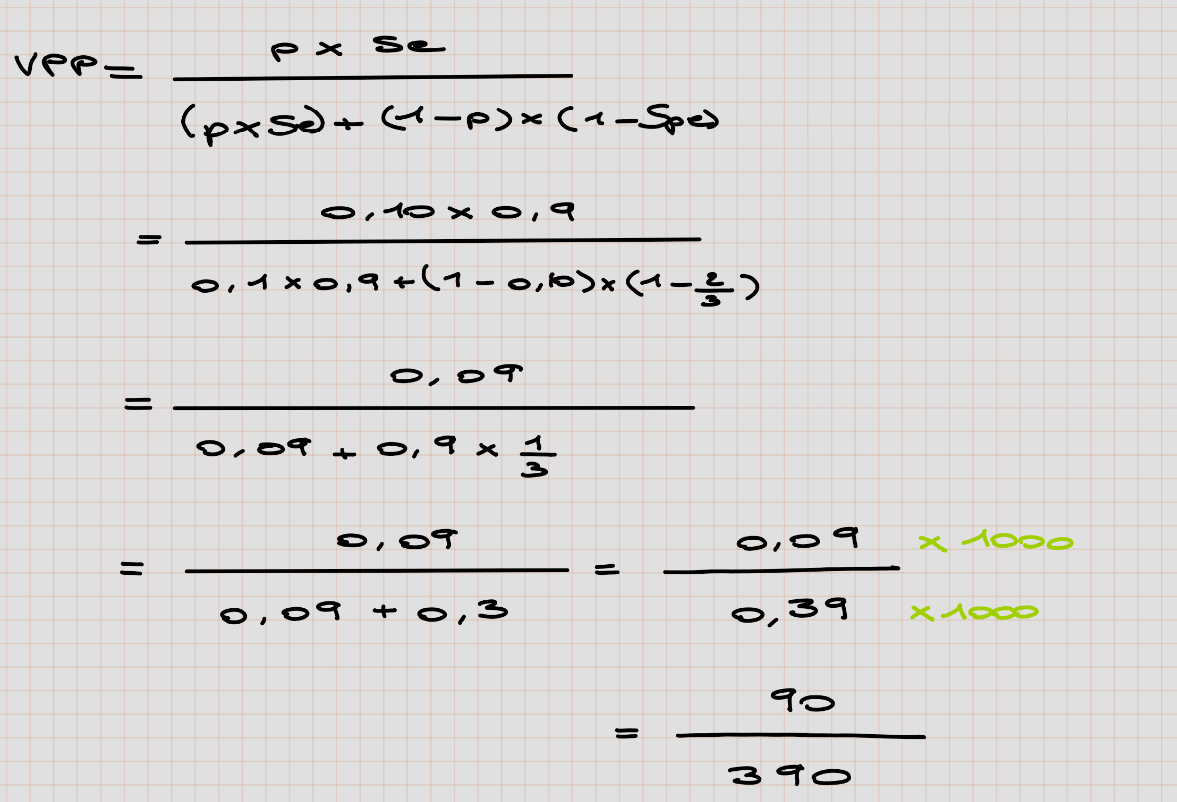 VPP = (p x Se) / ((p x Se) + (1 - p) x (1 - Spe))
= (0,10 x 0,9) / (0,1 x 0,9 + (1 - 0,10) x (1 - 2/3))
= 0,09 / (0,09 + 0,9 x 1/3)
= 0,09 / (0,09 + 0,3) = 0,09 / 0,39 x 1000 x 1000
= 90 / 390